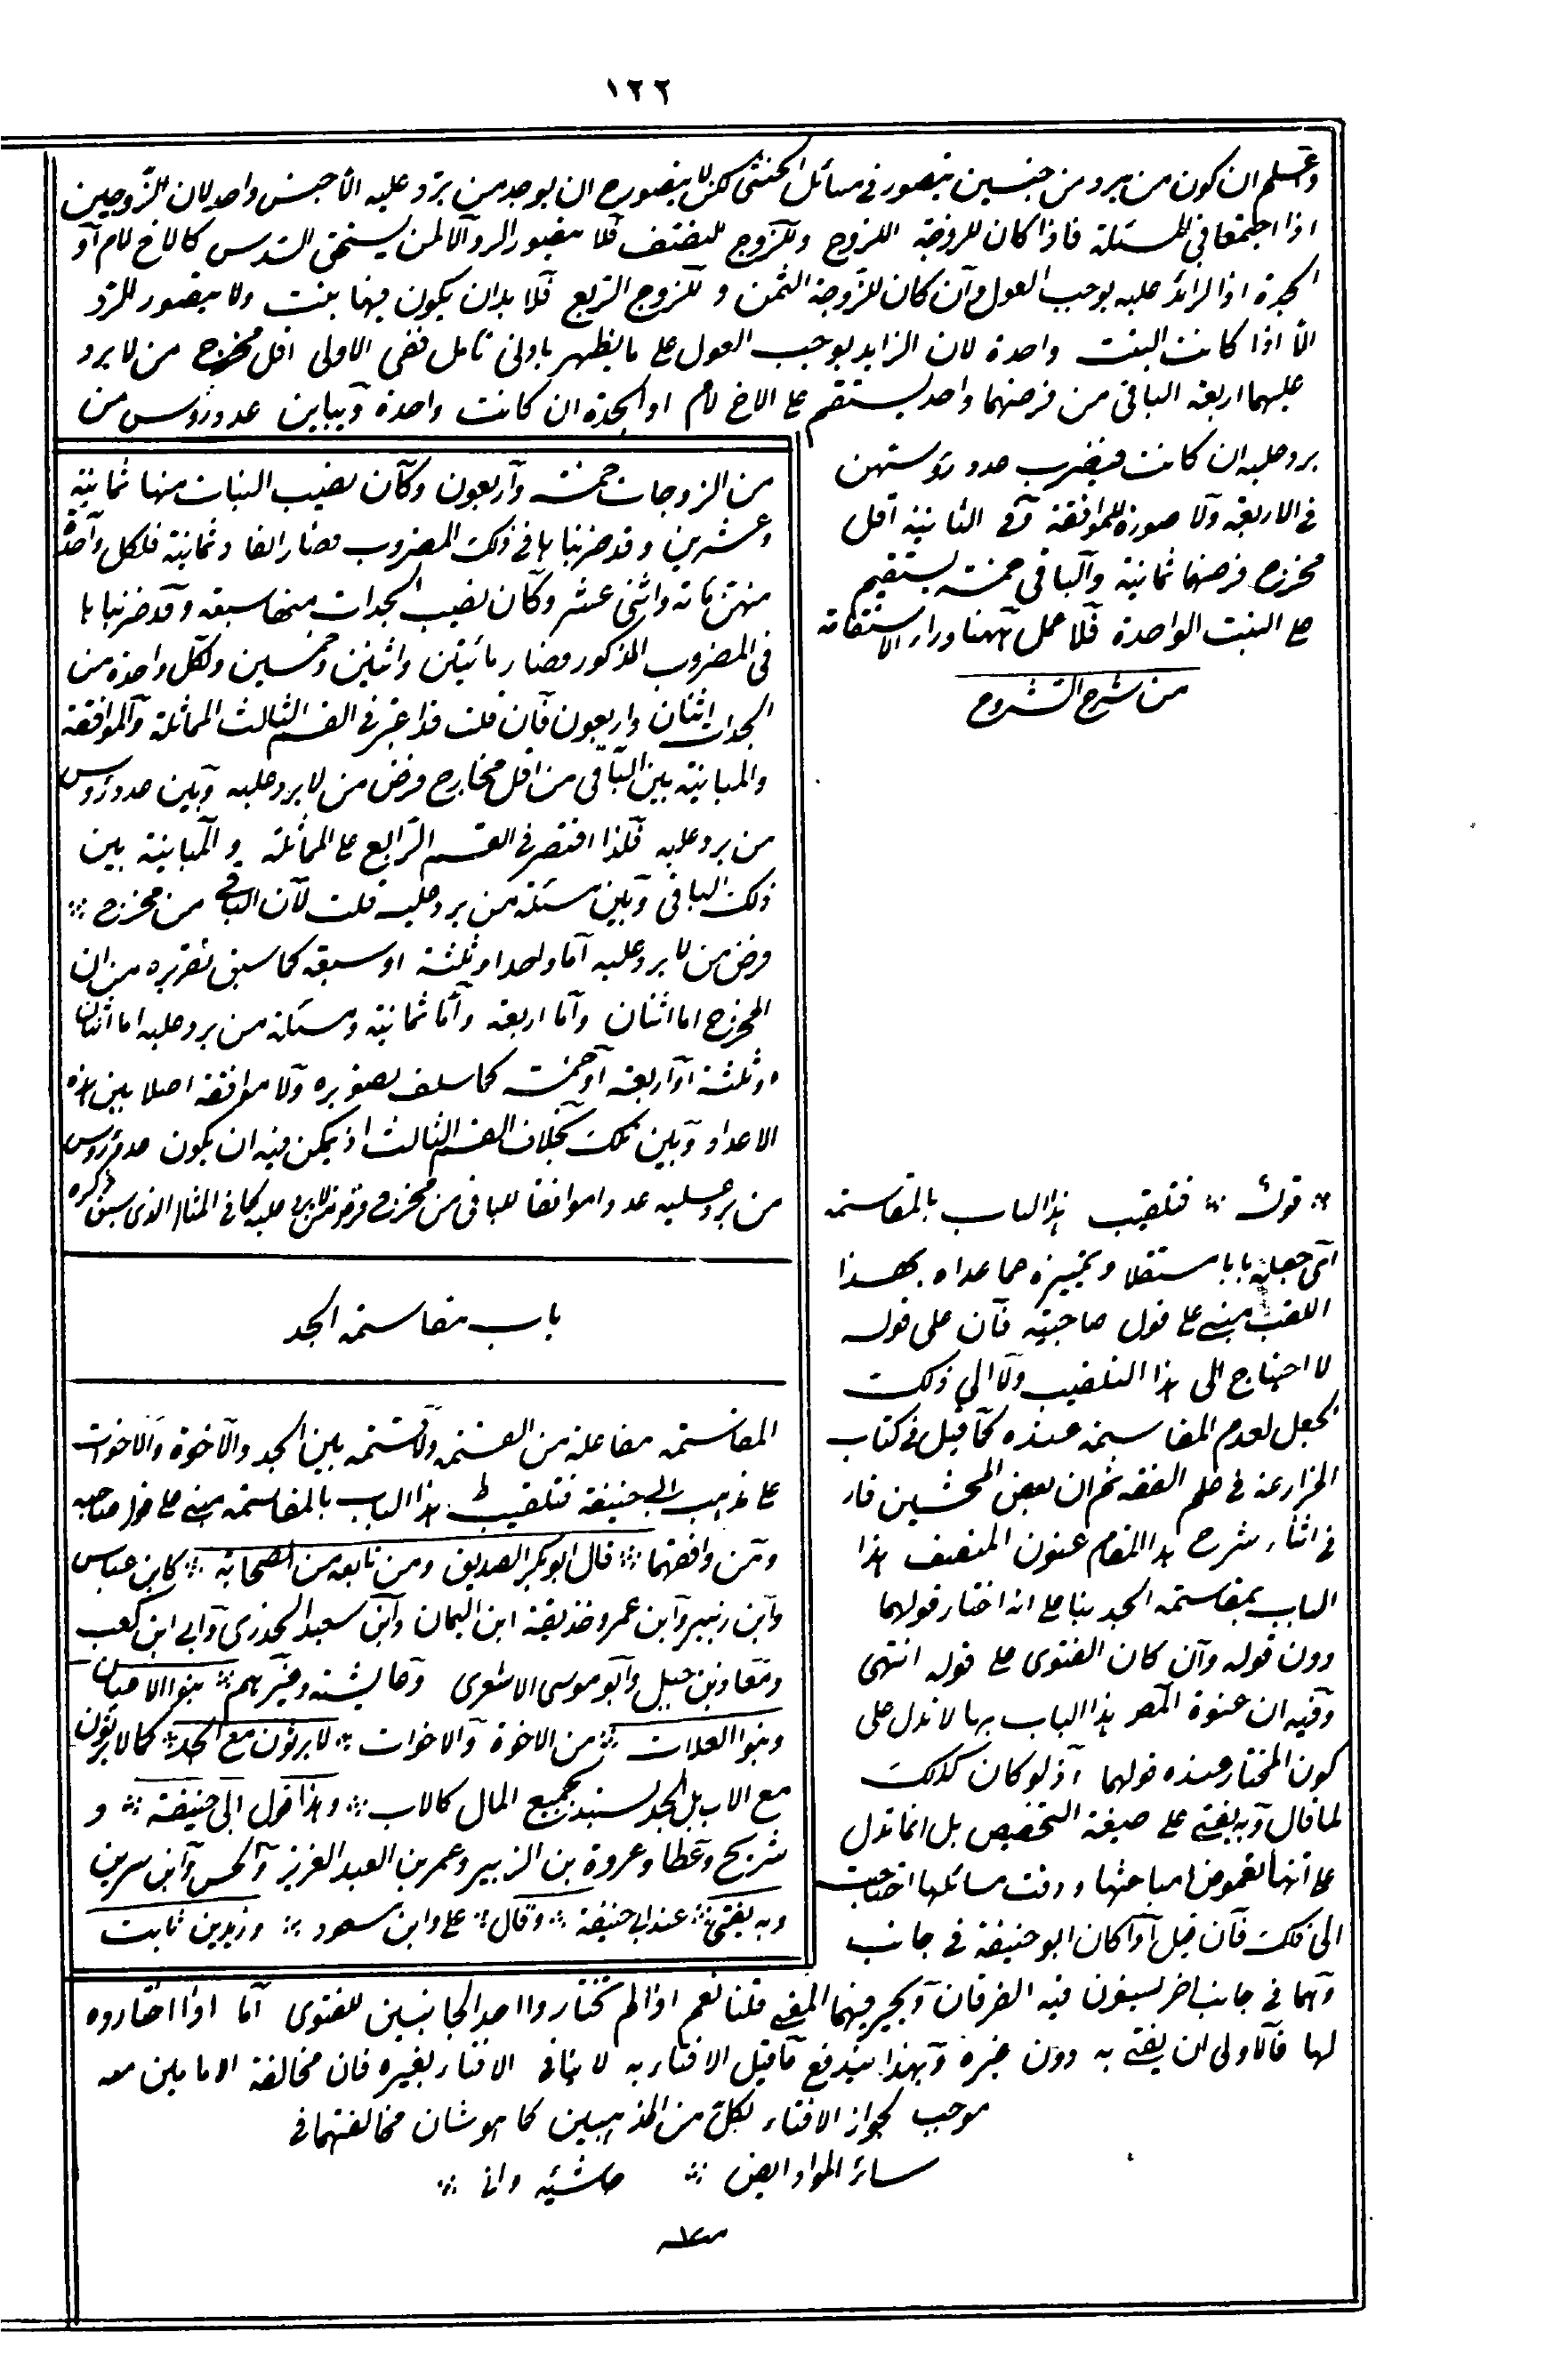 ١٢٢
واعلم ان كون من يرد من جنسين يتصور في مسائل الخنثى لكن لا يتصور ان يوجد من يرد عليه الا جنس واحد لان الزوجين
اذا اجتمعا في المسئلة فاذا كان للزوجة الربع وللزوج النصف فلا يتصور الرد الا لمن يستحق السدس كالاخ لام او
الجدة اذ الزائد عليه يوجب العول وان كان للزوجة الثمن وللزوج الربع فلا بد ان يكون فيها بنت ولا يتصور الرد
الا اذا كانت البنت واحدة لان الزايد يوجب العول على ما يظهر بادنى تامل ففى الاولى اقل مخرج من لا يرد
عليهما اربعة الباقى من فرضهما واحد يستقيم على الاخ لام او الجدة ان كانت واحدة ويباين عدد رؤس من
يرد عليه ان كانت فيضرب عدد رؤسهن
في الاربعة ولا صورة للموافقة وفى الثانية اقل
مخرج فرضهما ثمانية والباقى خمسة يستقيم
على البنت الواحدة فلا عمل ههنا وراء الاستقامة
من شرح الشروح
من الزوجات خمسة واربعون وكان نصيب البنات منها ثمانية
وعشرين وقد ضربناها في ذلك المضروب فصار الفا وثمانية فلكل واحدة
منهن مائة واثنى عشر وكان نصيب الجدات منها سبعة وقد ضربناها
في المضروب المذكور فصار مائتين واثنين وخمسين ولكل واحدة من
الجدات اثنان واربعون فان قلت قد اعتبر في القسم الثالث المماثلة والموافقة
والمباينة بين الباقى من اقل مخارج فرض من لا يرد عليه وبين عدد رؤس
من يرد عليه فلذا اقتصر في القسم الرابع على المماثلة والمباينة بين
ذلك الباقى وبين مسئلة من يرد عليه قلت لان الباقى من مخرج
فرض من لا يرد عليه اما واحد او ثلثة او سبعة كما سبق تقريره من ان
المخرج اما اثنان واما اربعة واما ثمانية ومسئلة من يرد عليه اما اثنان
او ثلثة او اربعة او خمسة كما سلف تصويره ولا موافقة اصلا بين هذه
الاعداد وبين تلك بخلاف القسم الثالث اذ يمكن فيه ان يكون عدد رؤس
من يرد عليه عددا موافقا للباقى من مخرج فرض من لا يرد عليه كما في المثال الذى سبق ذكره
باب مقاسمة الجد
المقاسمة مفاعلة من القسمة ولا قسمة بين الجد والاخوة والاخوات
على مذهب ابى حنيفة فتلقيب هذا الباب بالمقاسمة مبنى على قول صاحبيه
ومن وافقهما قال ابو بكر الصديق ومن تابعه من الصحابة كابن عباس
وابن زبير وابن عمر وحذيفة ابن اليمان وابى سعيد الخدرى وابى ابن كعب
ومعاذ بن جبل وابو موسى الاشعرى وعايشة وغيرهم بنوا الاعيان
وبنوا العلات من الاخوة والاخوات لا يرثون مع الجد كما لا يرثون
مع الاب بل الجد يستبد بجميع المال كالاب وهذا قول ابى حنيفة و
شريح وعطا وعروة بن الزبير وعمر بن العبد العزيز والحسن وابن سرين
وبه يفتى عند ابى حنيفة وقال على وابن مسعود وزيد بن ثابت
قوله فتلقيب هذا الباب بالمقاسمة
اى جعله بابا مستقلا وتمييزه عما عداه بهذا
اللقب مبنى على قول صاحبيه فان على قوله
لا احتياج الى هذا التلقيب ولا الى ذلك
الجعل لعدم المقاسمة عنده كما قيل في كتاب
المزارعة في علم الفقه ثم ان بعض المحشين قال
في اثناء شرح هذا المقام عنون المصنف هذا
الباب بمقاسمة الجد بناء على انه اختار قولهما
دون قوله وان كان الفتوى على قوله انتهى
وفيه ان عنوة المصر هذا الباب بها لا تدل على
كون المختار عنده قولهما اذ لو كان كذلك
لما قال وبه يفتى على صيغة التخصيص بل انما تدل
على انها لغموض مباحثها ودقت مسائلها احتاجت
الى ذلك فان قيل اذا كان ابو حنيفة في جانب
وهما في جانب اخر يسيغون فيه الفرقان ويخير فيهما المفتى قلنا نعم اذا لم يختاروا احد الجانبين للفتوى اما اذا اختاروه
لها فالاولى ان يفتى به دون غيره وبهذا يندفع ما قيل الافتاء به لا ينافى الافتاء بغيره فان مخالفة الامامين معه
موجب لجواز الافتاء بكل من المذهبين كما هو شان مخالفتهما في
سائر المواد ايضا حاشيه وانى